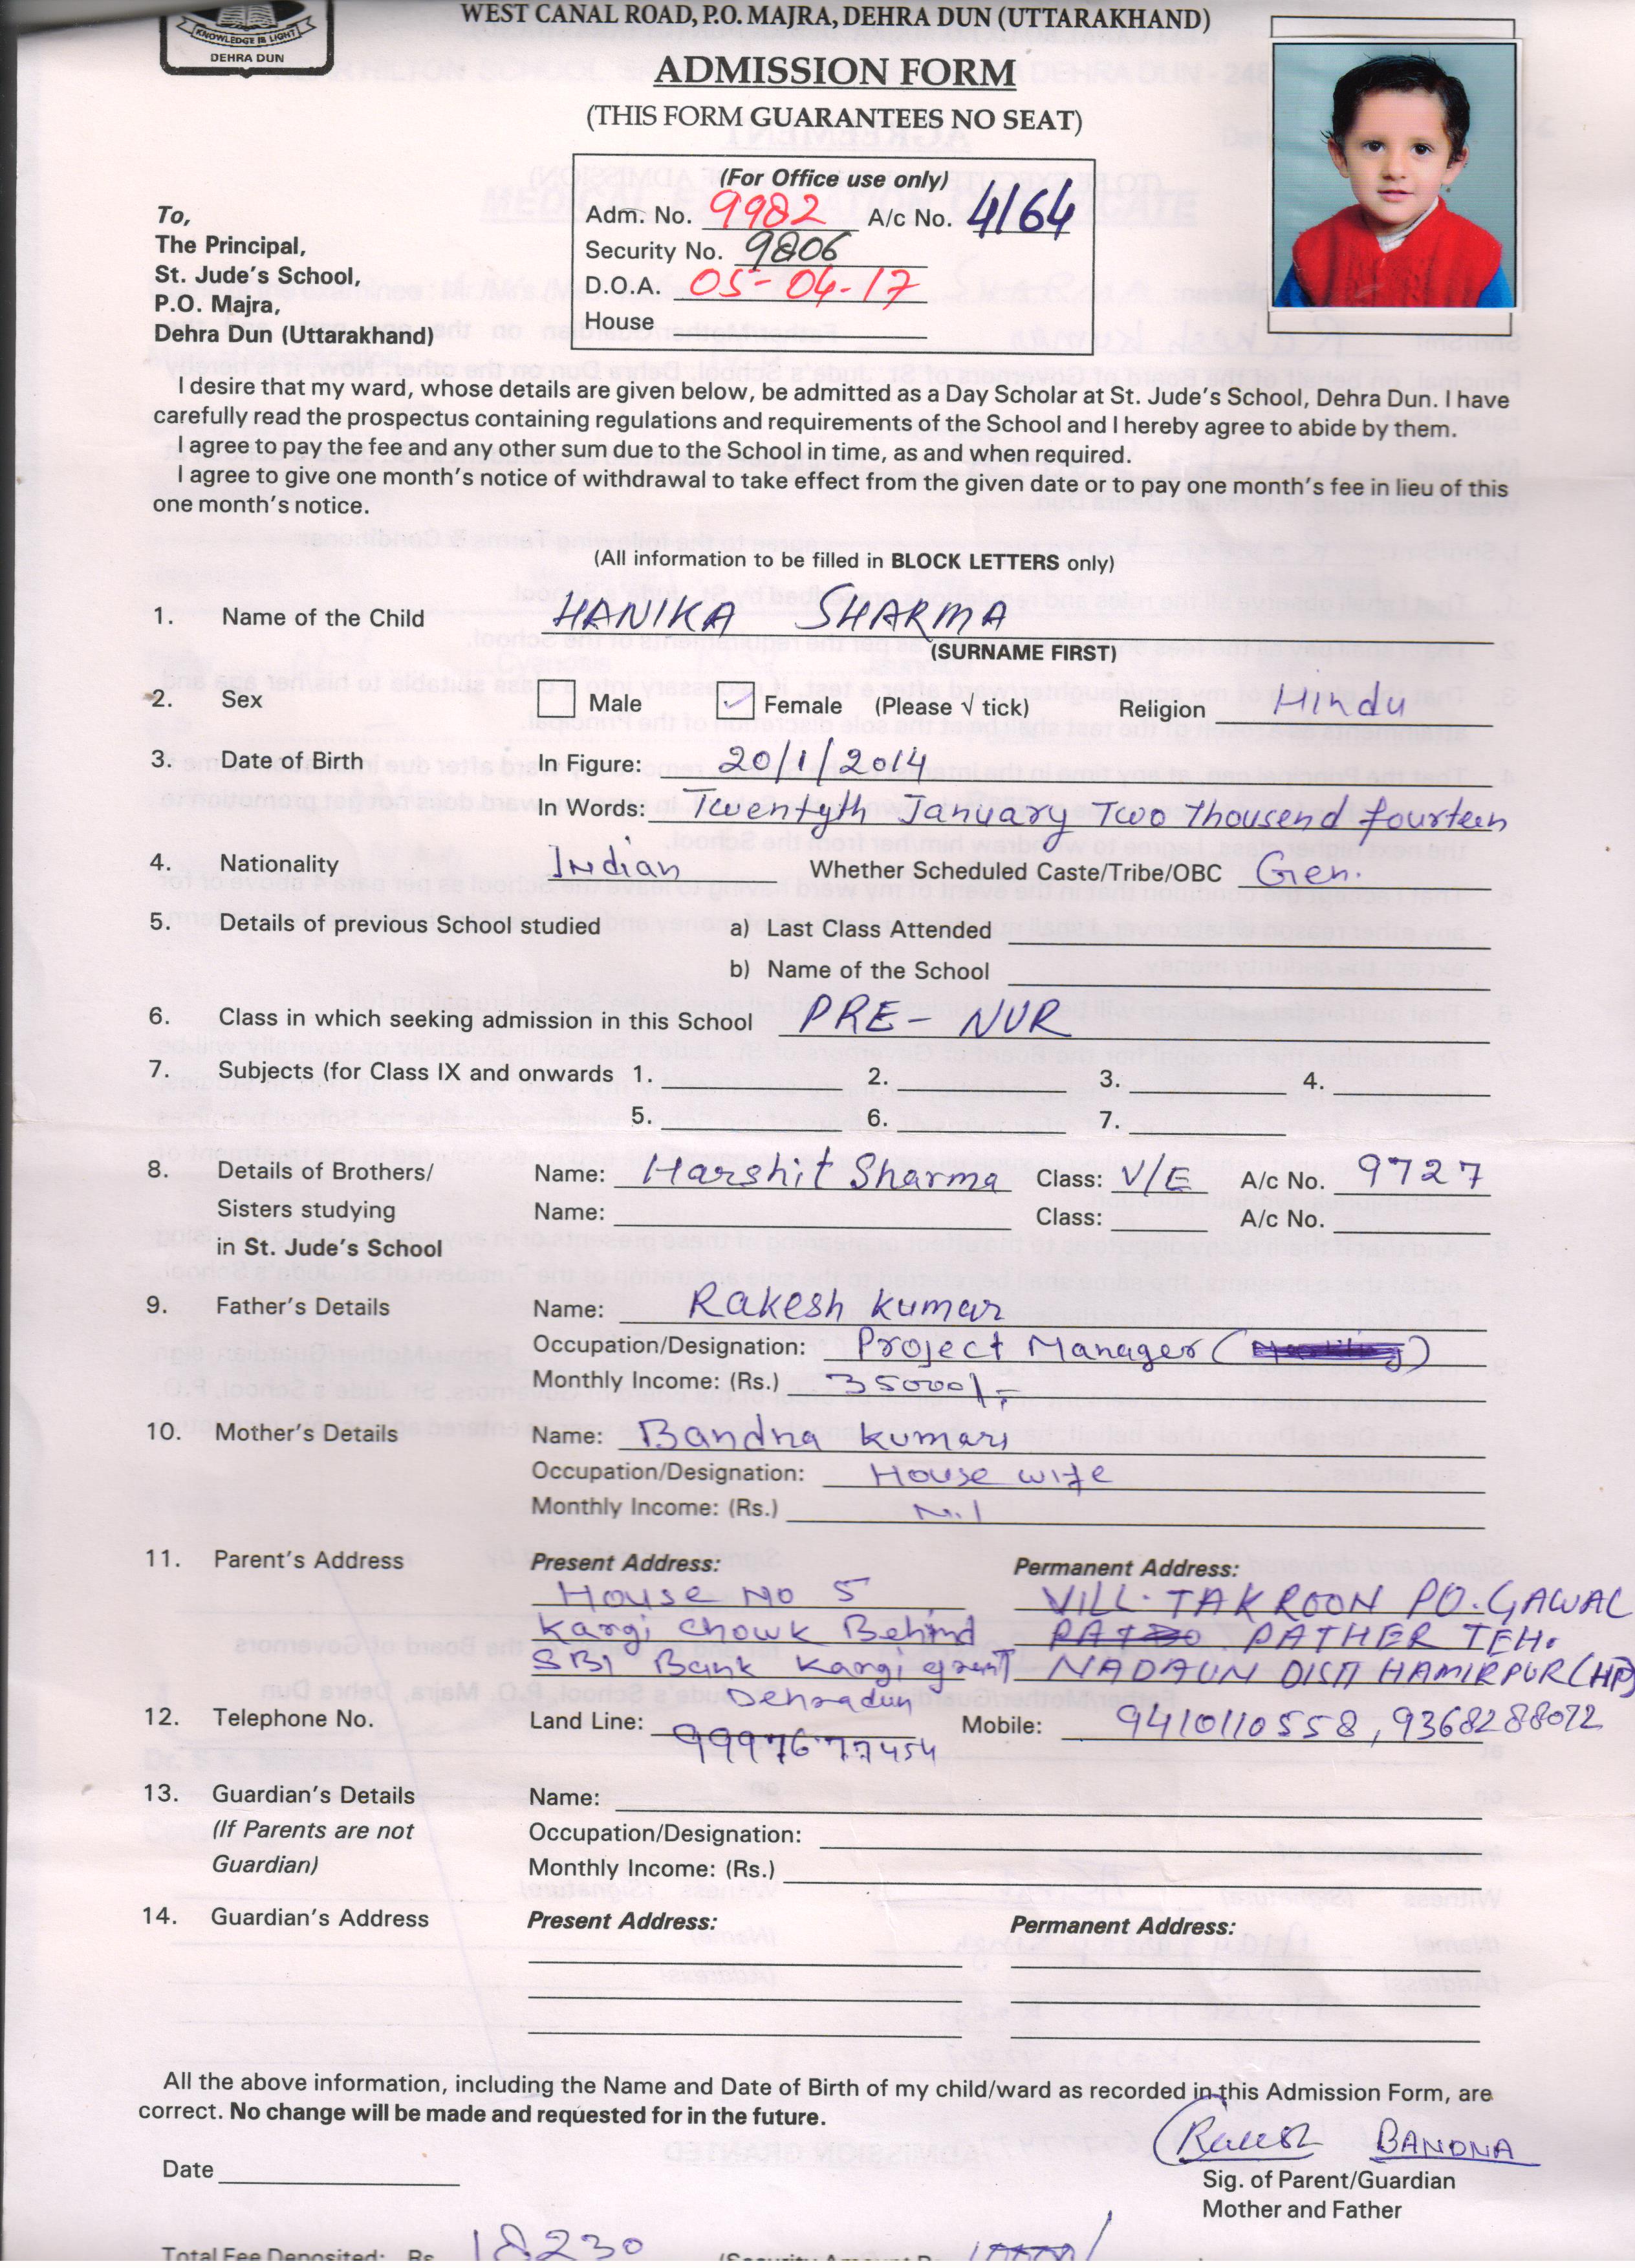 KNOWLEDGE IS LIGHT
DEHRA DUN
WEST CANAL ROAD, P.O. MAJRA, DEHRA DUN (UTTARAKHAND)
ADMISSION FORM
(THIS FORM GUARANTEES NO SEAT)
(For Office use only)
Adm. No. 9982 A/c No. 4164
Security No. 9806
D.O.A. 05-04-17
House
To,
The Principal,
St. Jude's School,
P.O. Majra,
Dehra Dun (Uttarakhand)
I desire that my ward, whose details are given below, be admitted as a Day Scholar at St. Jude's School, Dehra Dun. I have
carefully read the prospectus containing regulations and requirements of the School and I hereby agree to abide by them.
I agree to pay the fee and any other sum due to the School in time, as and when required.
I agree to give one month's notice of withdrawal to take effect from the given date or to pay one month's fee in lieu of this
one month's notice.
(All information to be filled in BLOCK LETTERS only)
1. Name of the Child HANIKA SHARMA
(SURNAME FIRST)
2. Sex Male Female (Please √ tick) Religion Hindu
3. Date of Birth In Figure: 20/1/2014
In Words: Twentyth January Two Thousend fourteen
4. Nationality Indian Whether Scheduled Caste/Tribe/OBC Gen.
5. Details of previous School studied a) Last Class Attended
b) Name of the School
6. Class in which seeking admission in this School PRE- NUR
7. Subjects (for Class IX and onwards 1. 2. 3. 4.
5. 6. 7.
8. Details of Brothers/ Name: Harshit Sharma Class: V/E A/c No. 9727
Sisters studying Name: Class: A/c No.
in St. Jude's School
9. Father's Details Name: Rakesh kumar
Occupation/Designation: Project Manager ( )
Monthly Income: (Rs.) 35000/-
10. Mother's Details Name: Bandna kumari
Occupation/Designation: House wife
Monthly Income: (Rs.) Nil
11. Parent's Address Present Address: Permanent Address:
House No 5 VILL. TAKROON PO. GAWAL
Kargi Chowk Behind PATHER TEH.
SBI Bank Kargi grant NADAUN DISTT HAMIRPUR (HP)
Dehradun
12. Telephone No. Land Line: 9997677454 Mobile: 9410110558, 9368288072
13. Guardian's Details Name:
(If Parents are not Occupation/Designation:
Guardian) Monthly Income: (Rs.)
14. Guardian's Address Present Address: Permanent Address:
All the above information, including the Name and Date of Birth of my child/ward as recorded in this Admission Form, are
correct. No change will be made and requested for in the future.
Rakesh BANDNA
Date
Sig. of Parent/Guardian
Mother and Father
Total Fee Deposited: Rs. 18230